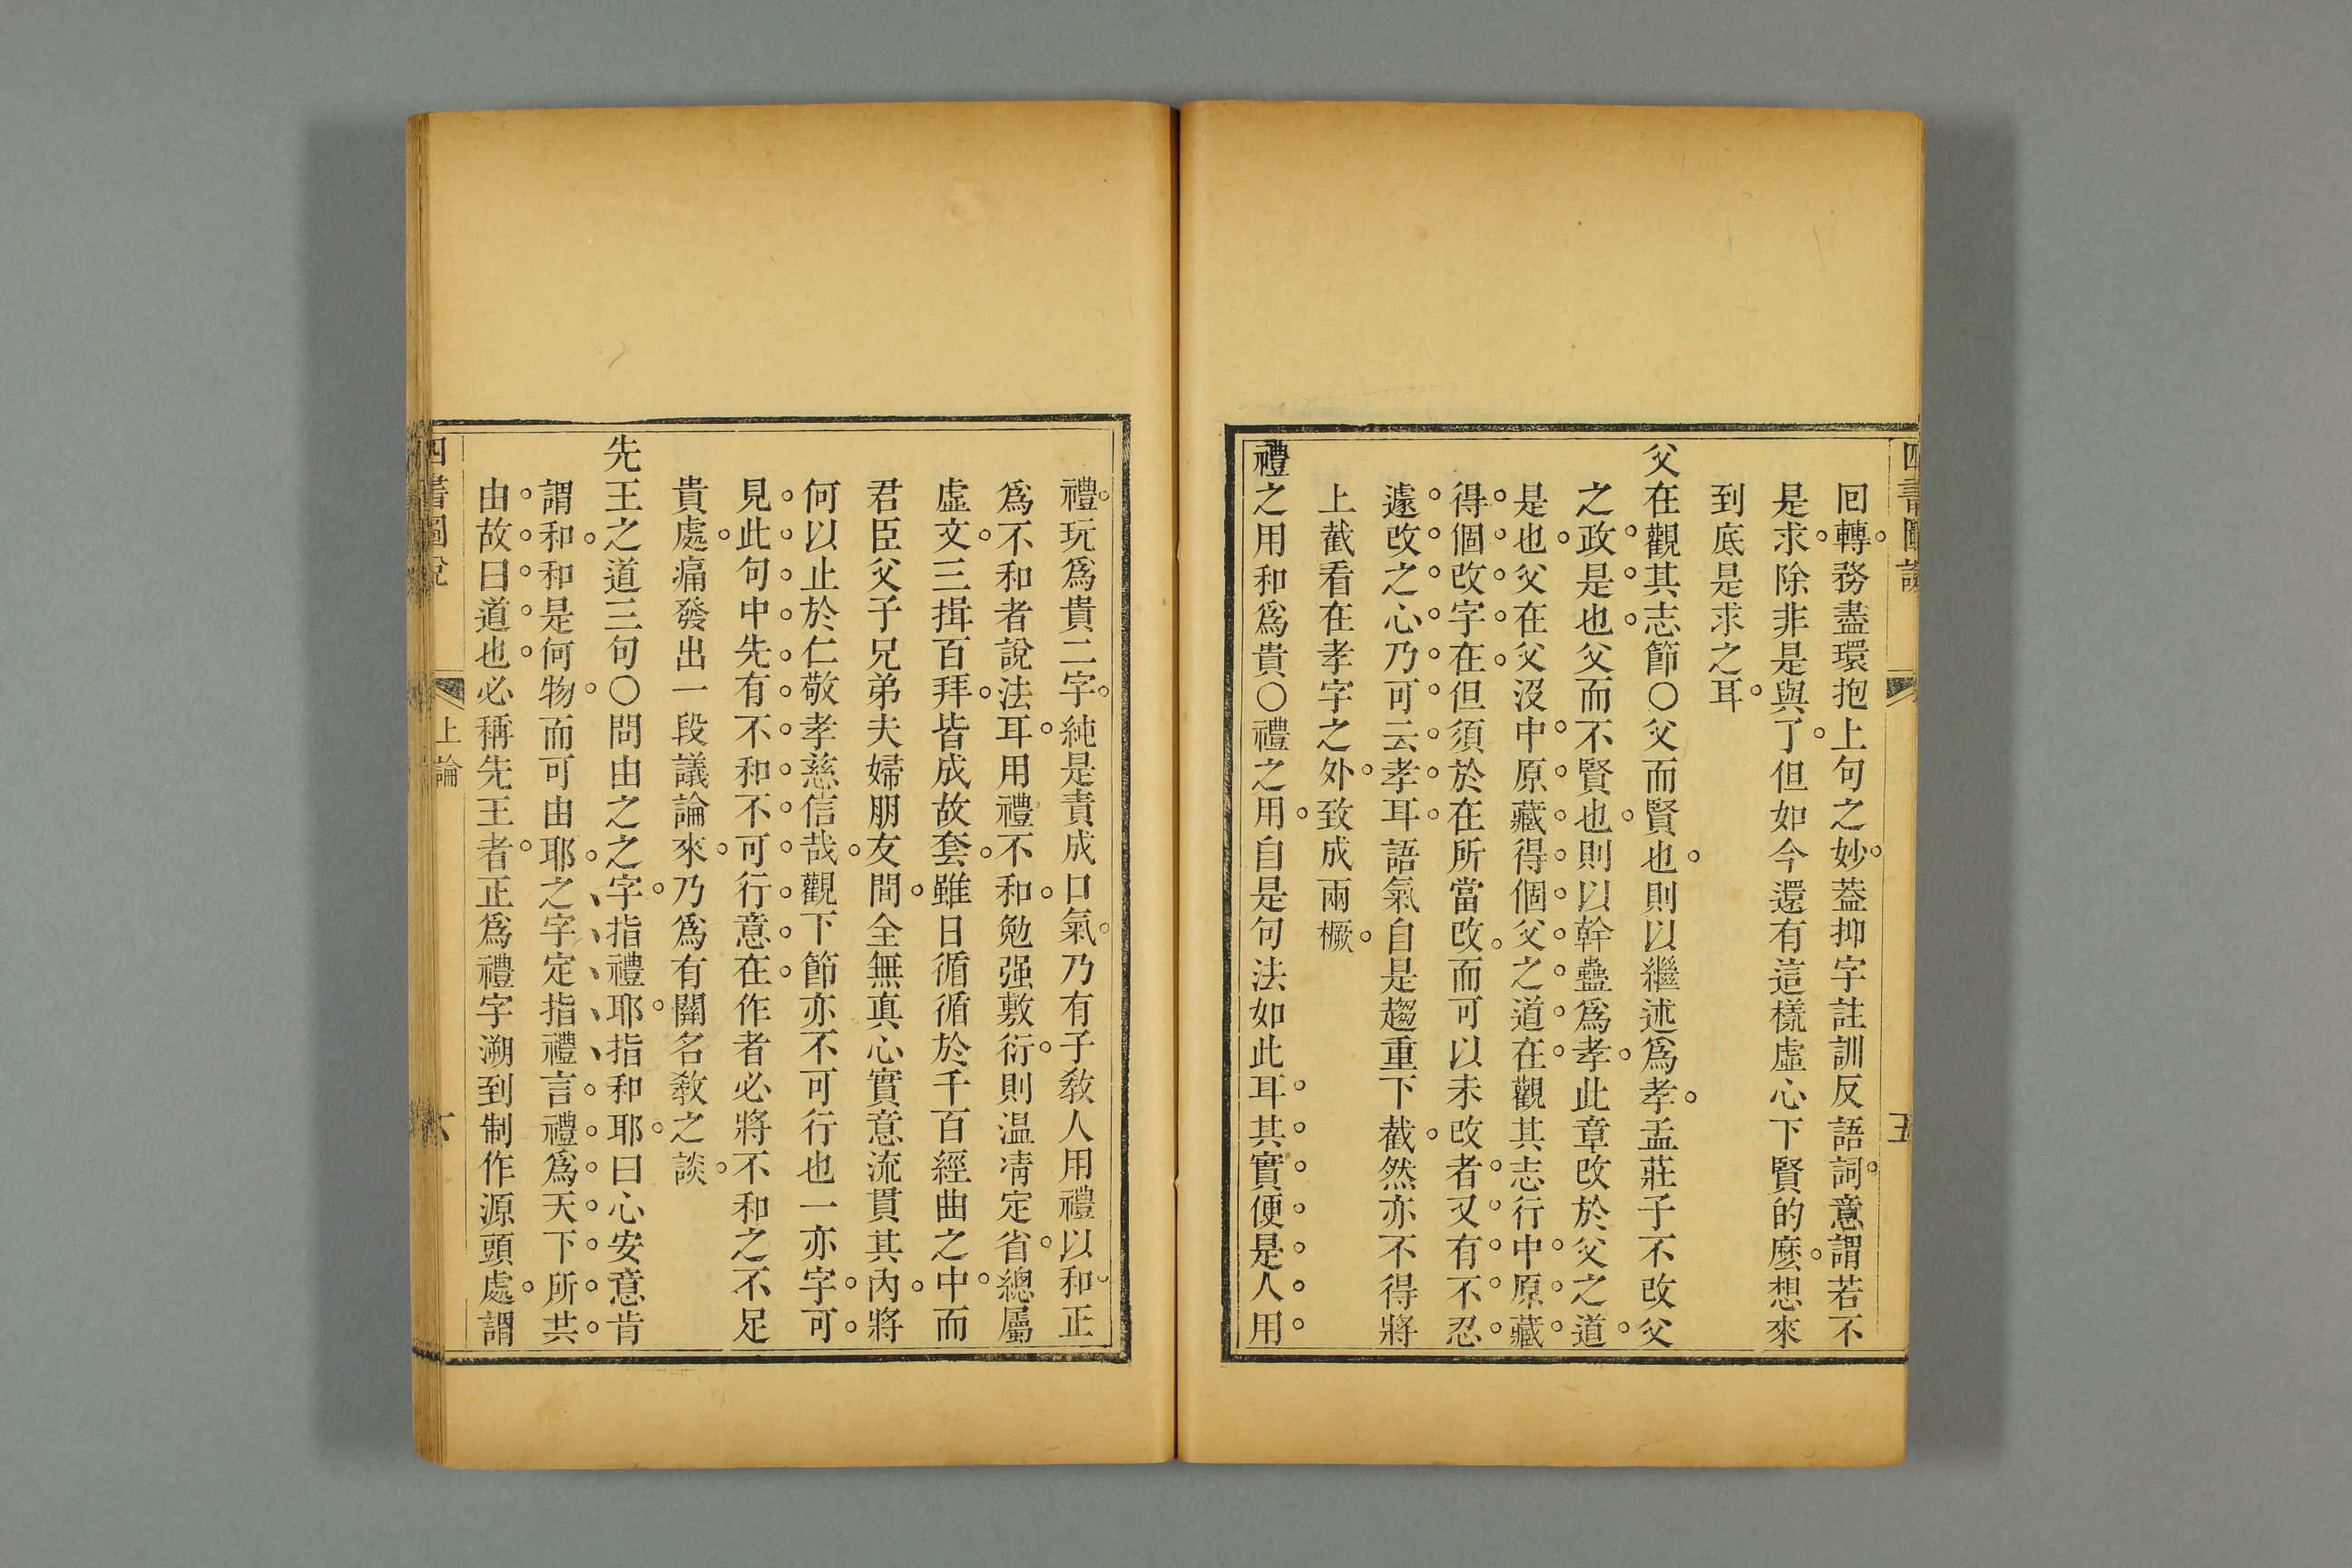 回轉務盡環抱上句之妙蓋抑字註訓反語詞意謂若不
是求除非是與了但如今還有這樣虛心下賢的麼想來
到底是求之耳
父在觀其志節○父而賢也則以繼述爲孝孟莊子不改父
之政是也父而不賢也則以幹蠱爲孝此章改於父之道
是也父在父沒中原藏得個父之道在觀其志行中原藏
得個改字在但須於在所當改而可以未改者又有不忍
遽改之心乃可云孝耳語氣自是趨重下截然亦不得將
上截看在孝字之外致成兩橛
禮之用和爲貴○禮之用自是句法如此耳其實便是人用
禮玩爲貴二字純是責成口氣乃有子敎人用禮以和正
爲不和者說法耳用禮不和勉强敷衍則温凊定省總屬
虛文三揖百拜皆成故套雖日循循於千百經曲之中而
君臣父子兄弟夫婦朋友間全無眞心實意流貫其內將
何以止於仁敬孝慈信哉觀下節亦不可行也一亦字可
見此句中先有不和不可行意在作者必將不和之不足
貴處痛發出一段議論來乃爲有關名敎之談
先王之道三句○問由之之字指禮耶指和耶曰心安意肯
謂和和是何物而可由耶之字定指禮言禮爲天下所共
由故曰道也必稱先王者正爲禮字溯到制作源頭處謂
四書圖說
上論
六